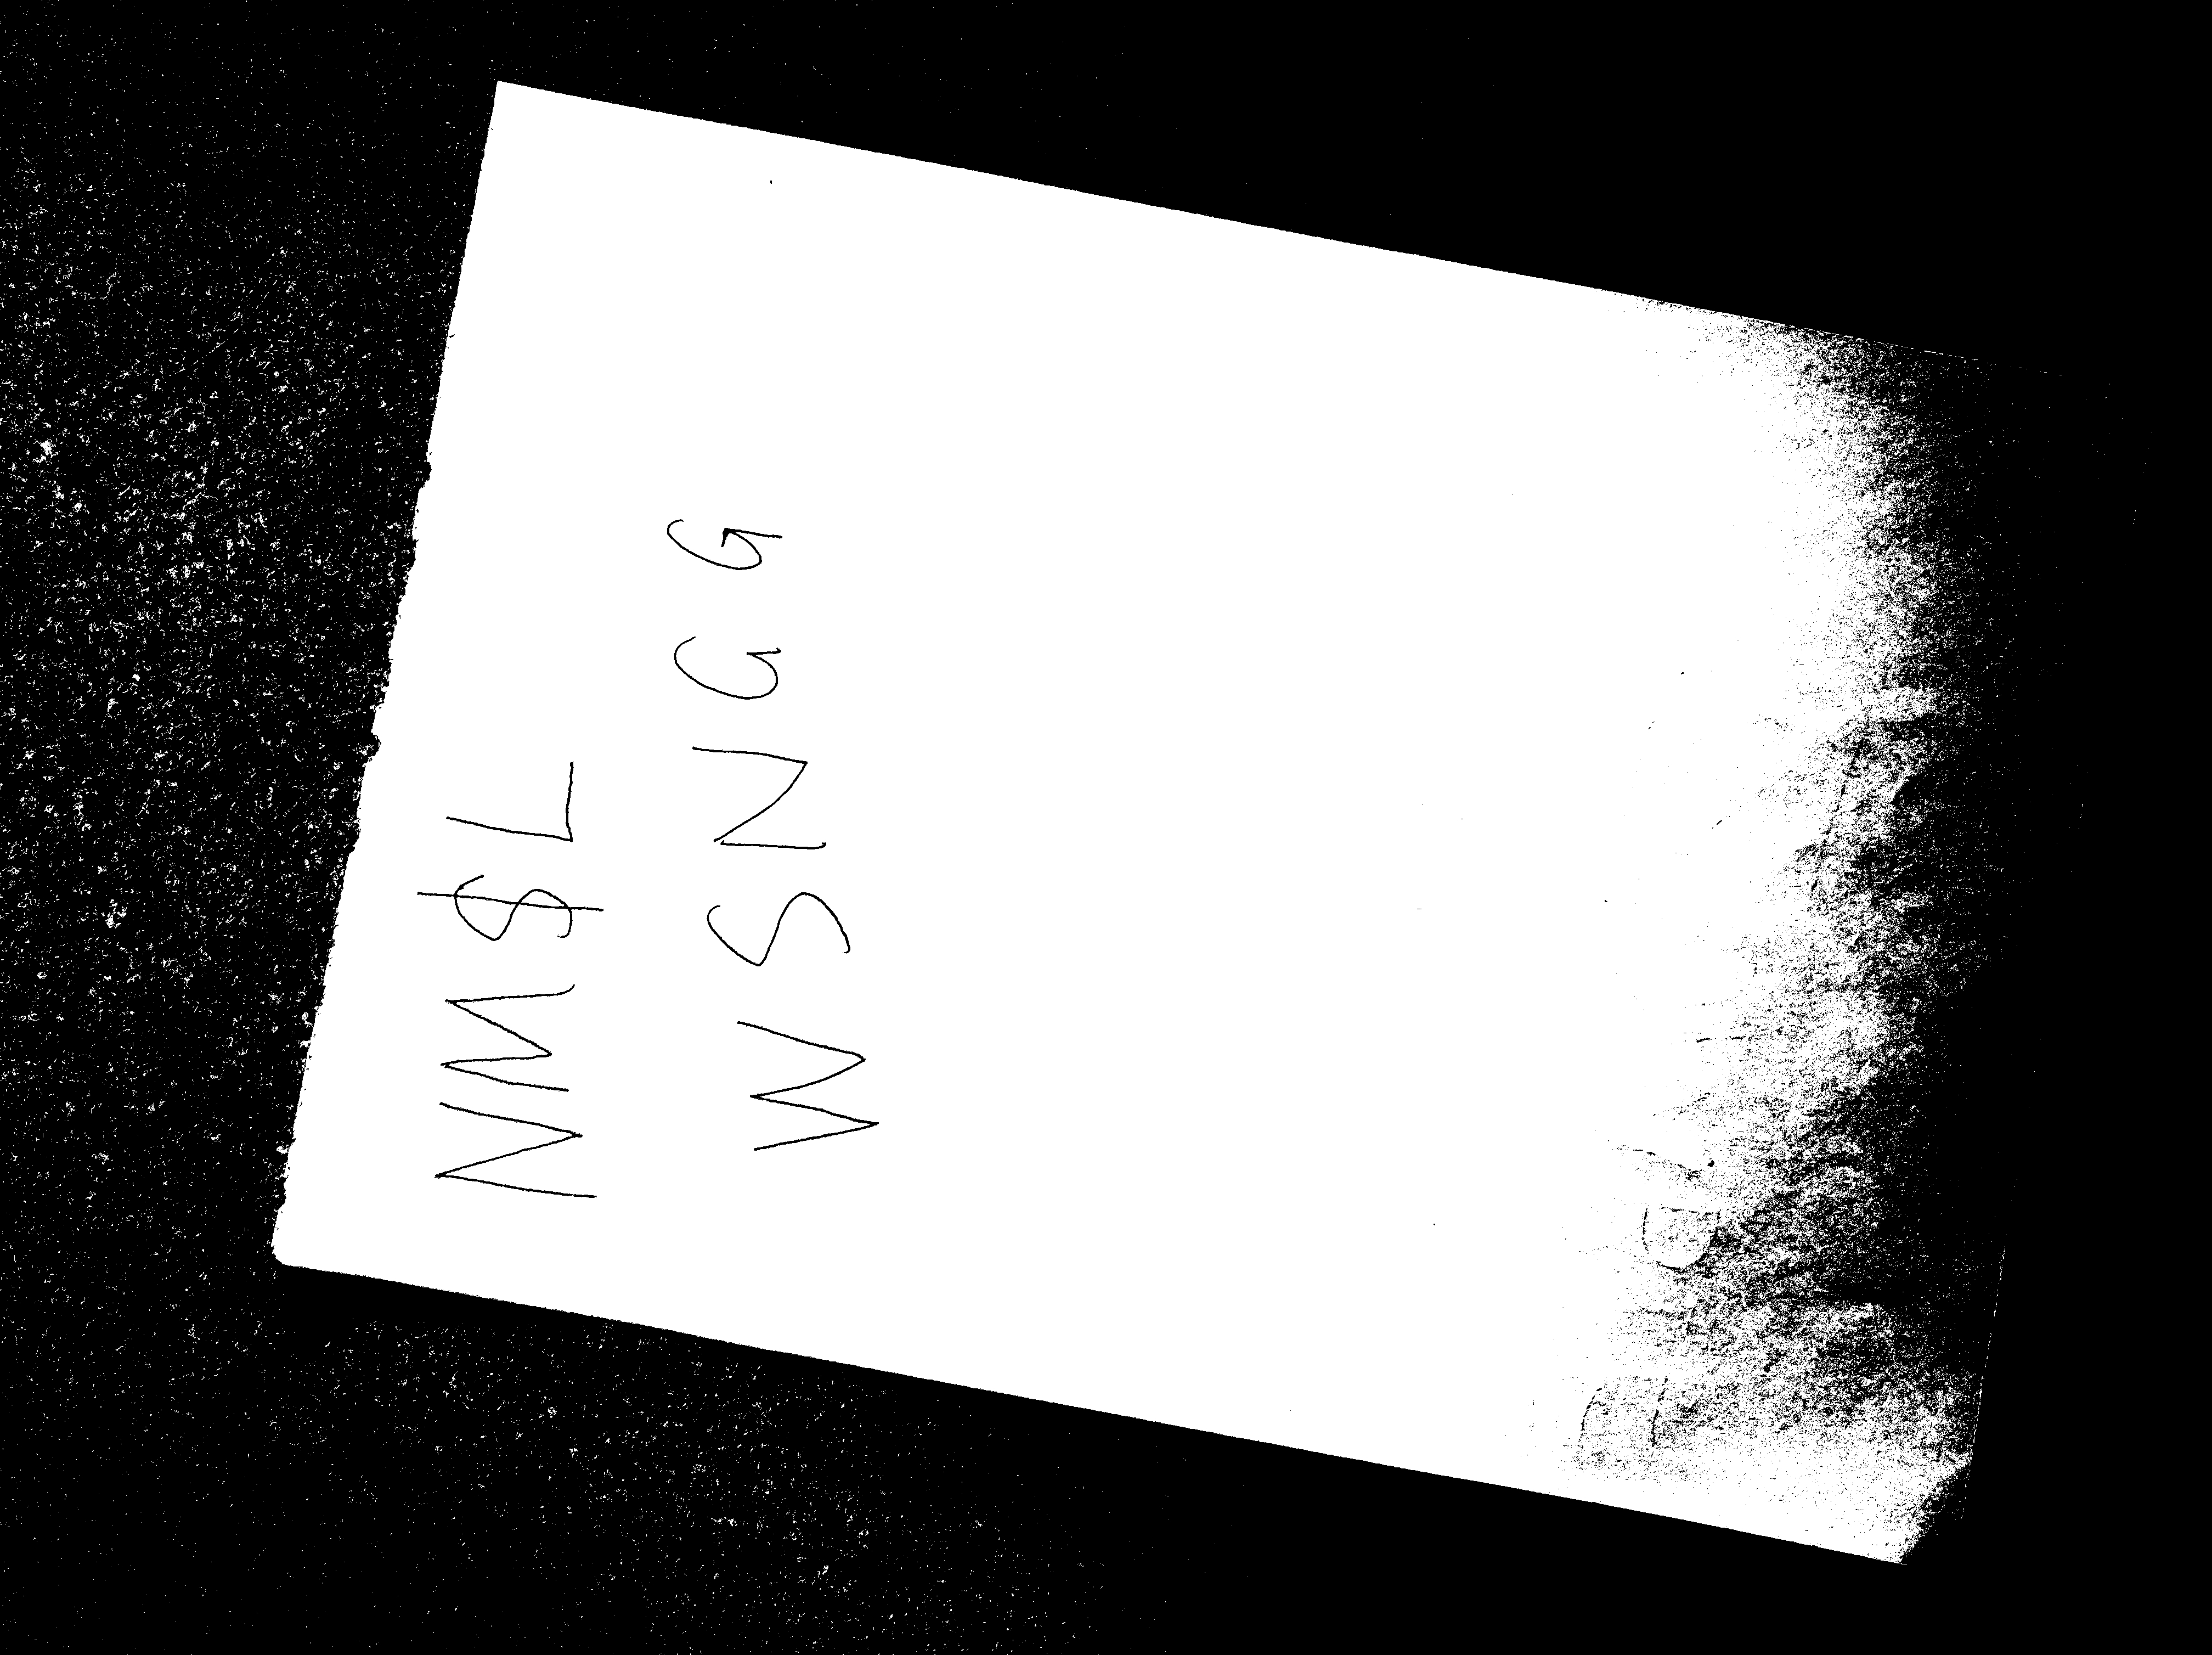 NM$L
WSNGG